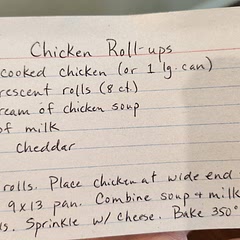 Chicken Roll-ups
cooked chicken (or 1 lg. can)
rescent rolls (8 ct.)
ream of chicken soup
of milk
cheddar
rolls. Place chicken at wide end
9x13 pan. Combine soup + milk
s. Sprinkle w/ cheese. Bake 350°